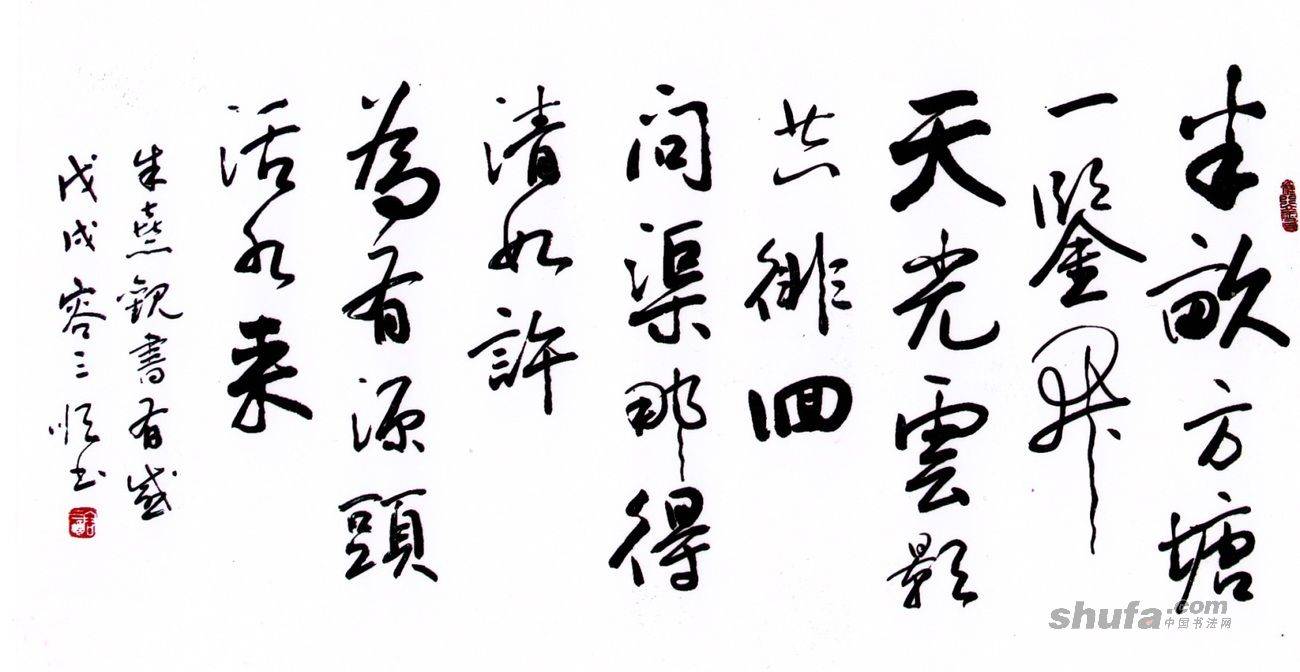 半畝方塘
一鑒開
天光雲影
共徘徊
問渠那得
清如許
為有源頭
活水来
朱熹觀書有感
戊戌容三順書
shufa.com
中国书法网